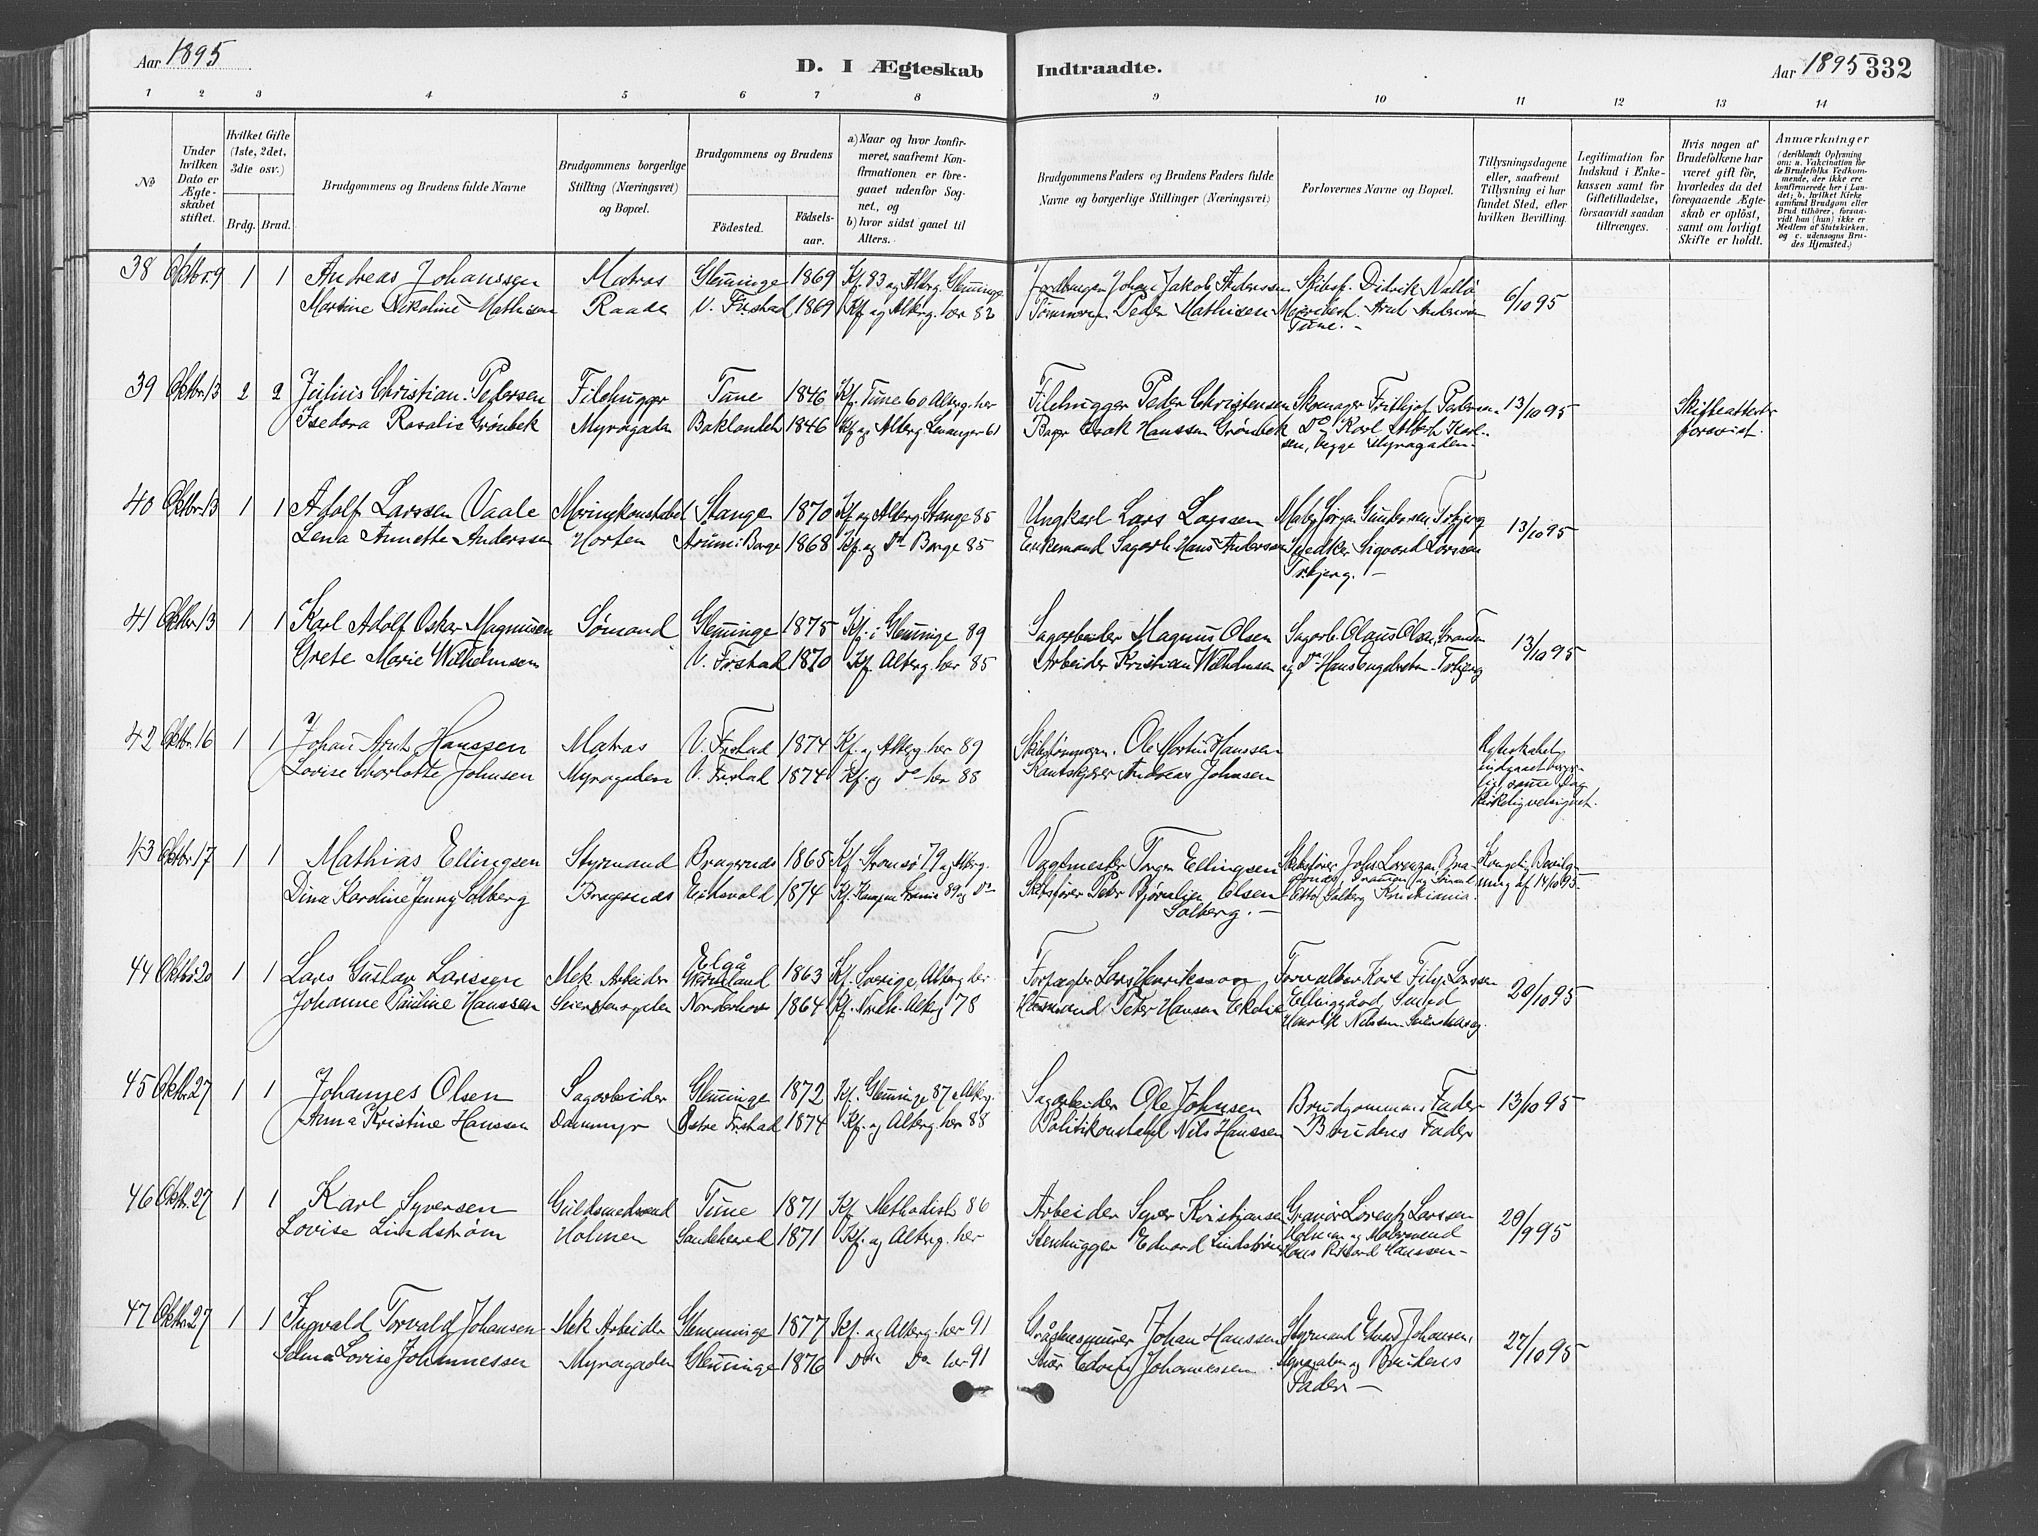 Aar 1895
D. I Ægteskab Indtraadte.
Aar 1895 332
1 2 3 4 5 6 7 8 9 10 11 12 13 14
No
Under hvilken Dato er Ægteskabet stiftet.
Hvilket Gifte (1ste, 2det, 3die osv.)
Brdg. Brud.
Brudgommens og Brudens fulde Navne
Brudgommens borgerlige Stilling (Næringsvei) og Bopæl.
Brudgommens og Brudens
Fødested.
Fødselsaar.
a) Naar og hvor konfirmeret, saafremt Konfirmationen er foregaaet udenfor Sognet, og
b) hvor sidst gaaet til Alters.
Brudgommens Faders og Brudens Faders fulde Navne og borgerlige Stillinger (Næringsvei)
Forlovernes Navne og Bopæl.
Tillysningsdagene eller, saafremt Tillysning ei har fundet Sted, efter hvilken Bevilling.
Legitimation for Indskud i Enkekassen samt for Giftetilladelse, forsaavidt saadan tiltrænges.
Hvis nogen af Brudefolkene har været gift før, hvorledes da det foregaaende Ægteskab er opløst, samt om lovligt Skifte er holdt.
Anmærkninger
(deriblandt Oplysning om: a. Vakcination for de Brudefolks Vedkommende, der ikke ere konfirmerede her i Landet; b. hvilket Kirkesamfund Brudgom eller Brud tilhører, forsaavidt han (hun) ikke er Medlem af Statskirken, og c. udensogns Brudes Hjemsted.)
38 Oktbr. 9 1 1 Andreas Johanssen Matros Glemminge 1869 Kf. 83 og Altberg. Glemminge Johan Jakob Anderssen Skibsf. Didrik 6/10 95
Martine Nikoline Mathisen Raade V. Frstad 1869 Kf. og Altbrg. her 82 Tømmerm. Peder Mathisen Arnt Andersen
Tune.-
39 Oktbr. 13 2 2 Julius Christian Pedersen Filehugger Tune 1846 Kf. Tune 60 Altberg. her Filehugger Peder Christensen Skomager Frithjof Pedersen 13/10 95 Skifteattest
Isedora Rosalie Grønbek Myragaden Baklandet 1846 Kf. og Altberg Levanger 61 Isak Hanssen Grønbek Do Karl Albert Karl- forevist.
sen, begge Myragaden
40 Oktbr. 13 1 1 Adolf Larssen Vaale Marinekonstabel Stange 1870 Kf. og Altberg. Stange 85 Ungkarl Lars Larssen Jørgen Gundersen, Trbjerg 13/10 95
Lena Annette Anderssen Horten Borge 1868 Kf. og Do Borge 85 Enkemand Sagarb. Hans Anderssen Snedker Sigvard Larssen
Trbjerg.-
41 Oktbr. 13 1 1 Karl Adolf Oskar Magnussen Sømand Glemminge 1875 Kf. i Glemminge 89 Sagarbeider Magnus Olsen Sagarb. Olaus Olsen, 13/10 95
Grete Marie Wilhelmsen V. Frstad 1870 Kf. Altberg. her 85 Arbeider Kristian Wilhelmsen og Do Hans Engebretsen Trbjerg
42 Oktbr. 16 1 1 Johan Arnt Hanssen Matros V. Frstad 1874 Kf. og Altberg. her 89 Skibstømmerm. Ole Martin Hanssen Ægteskabet
Lovise Charlotte Johnsen Myragaden V. Frstad 1874 Kf. og Do her 88 Andreas Johnsen indgaaet borger-
ligt, samme Dag
kirkelig velsignet.
43 Oktbr. 17 1 1 Mathias Ellingsen Styrmand Bragernes 1865 Kf. Tromsø 79 og Altbrg. Vagtmester Ellingsen Skibsfører Johs. Lorenzen, Kongelig Bevilg-
Dina Karoline Jenny Solberg Bragernes Eidsvold 1874 Kf. 89 og Do Skibsfører Peter Olsen Otto Solberg Kristiania. ning af 14/10 95
Solberg.-
44 Oktbr. 20 1 1 Lars Gustav Larssen Mek. Arbeider Elgå Wermland 1863 Kf. Sverige, Altberg her Forpagter Lars Henriksson Forvalter Karl Filip Larssen 20/10 95
Johanne Pauline Hanssen Norderhov 1864 Kf. Nordh. Altberg 78 Husmand Peter Hansen Ellinggård Smed
Henrik Nilssen
45 Oktbr. 27 1 1 Johannes Olsen Sagarbeider Glemminge 1872 Kf. Glemminge 87 og Altbrg. Sagarbeider Ole Johnsen Brudgommens Fader 13/10 95
Anna Kristine Hanssen Dammyr Østre Frstad 1874 Kf. og Altberg. her 88 Politikonstabel Nils Hanssen Brudens Fader
46 Oktbr. 27 1 1 Karl Syversen Guldsmedsvend Tune 1871 Kf. Methodist 86 Arbeider Syver Kristiansen Gravør Lorentz Larssen 29/9 95
Lovise Lindstrøm Holmen Sandeherred 1871 Kf. og Altberg. her Stenhugger Edvard Lindstrøm Holmen og
Hans Rikard Hanssen-
47 Oktbr. 27 1 1 Ingvald Torvald Johansen Mek Arbeider Glemminge 1877 Kf. og Altberg. her 91 Gråstensmurer Johan Hanssen Styrmand Johansen, 27/10 95
Selma Lovise Johannessen Myragaden Glemminge 1876 Do Do her 91 Johannessen Myragaden og Brudens
Fader-